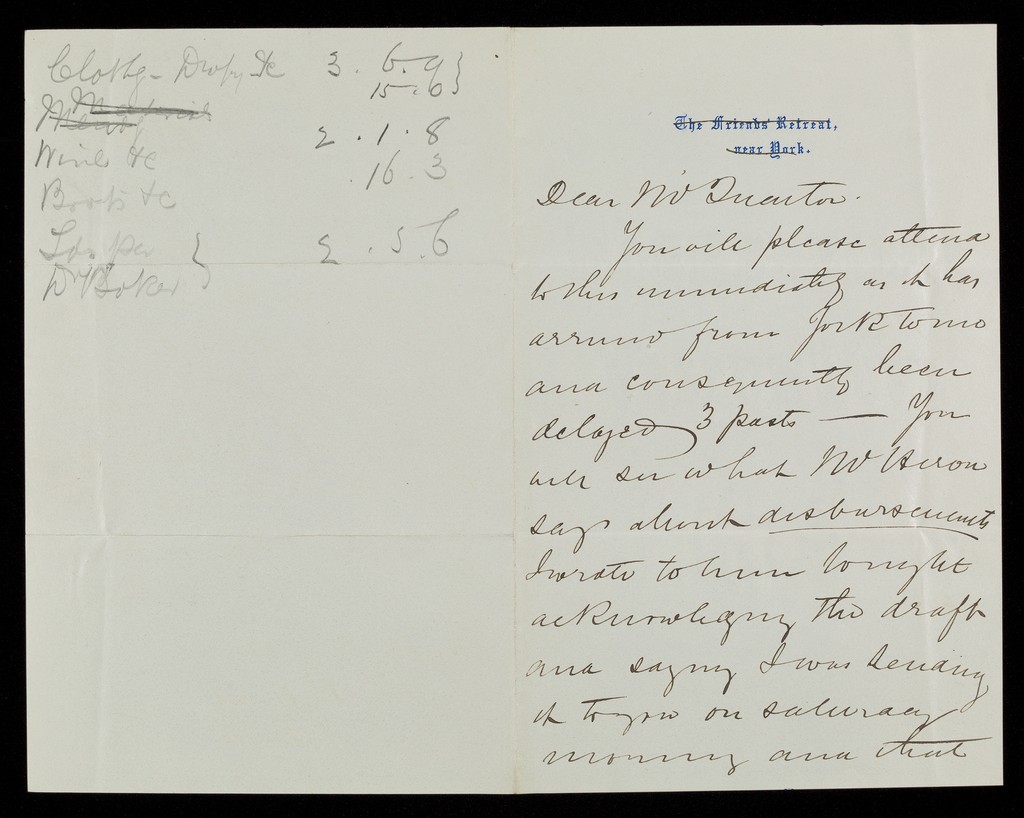 Clothg - Drapy &c 3 . 6 . 9 }
15 . 6 }
2 . 1 . 8
Wine &c . 16 . 3
Boots &c
} 2 . 5 . 6
Dr Baker }
The Friends' Retreat,
near York.
Dear Mr
You will please attend
to this immediately as it has
arrived from York to me
and consequently been
delayed 3 posts — You
will see what Mr Heron
says about disbursements
I wrote to him tonight
acknowledging the draft
and saying I was sending
it to you on Saturday
morning and that